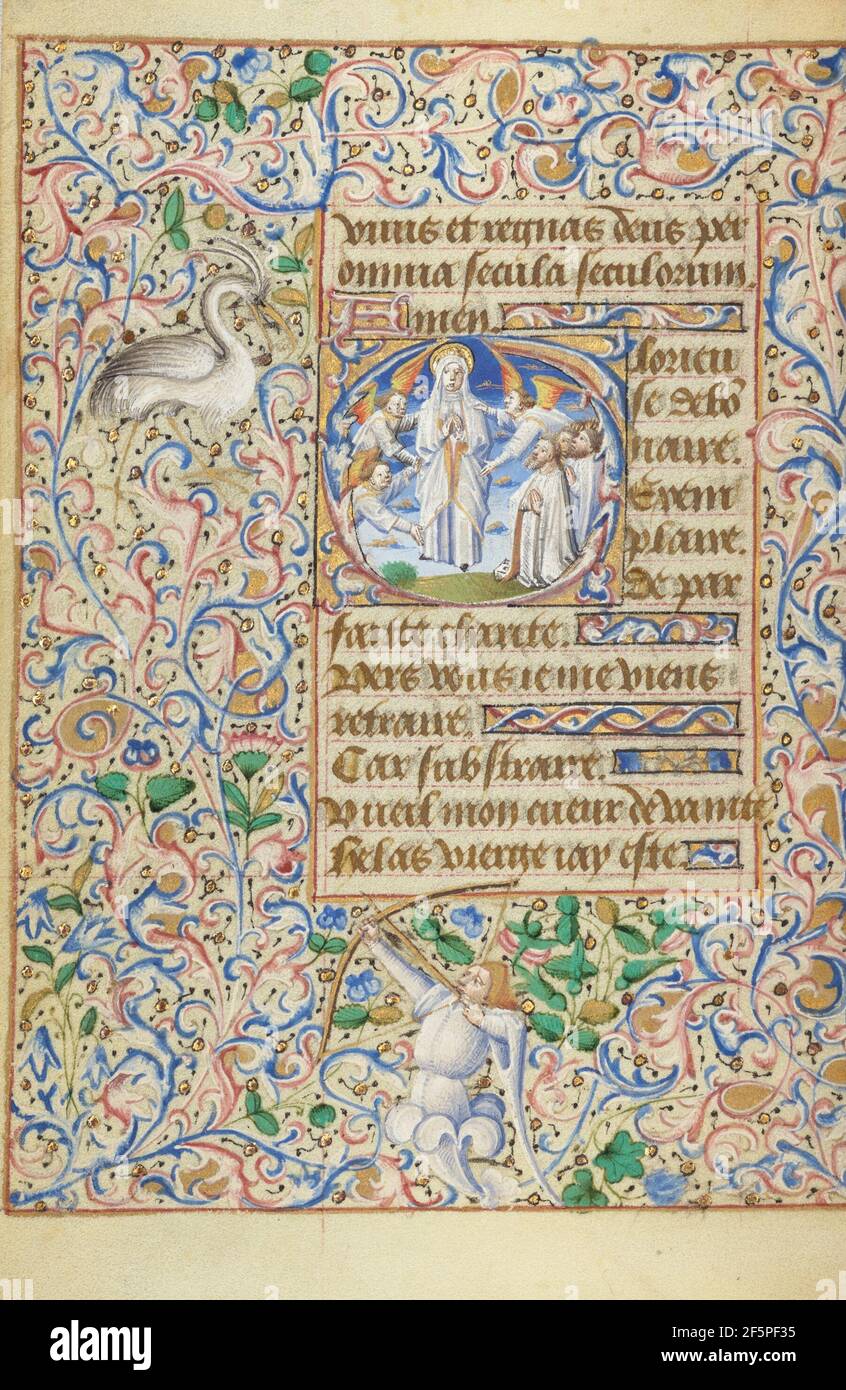 viuis et regnas deus per
omnia secula seculorum.
Amen.
Glorieu
se debo
naire.
Exem
plaire.
De par
faicte charite.
Vers vous ie me viens
retraire.
Car substraire.
Vueil mon cueur de vanite
Helas vierge iay este.
alamy
Image ID: 2F5PF35
www.alamy.com